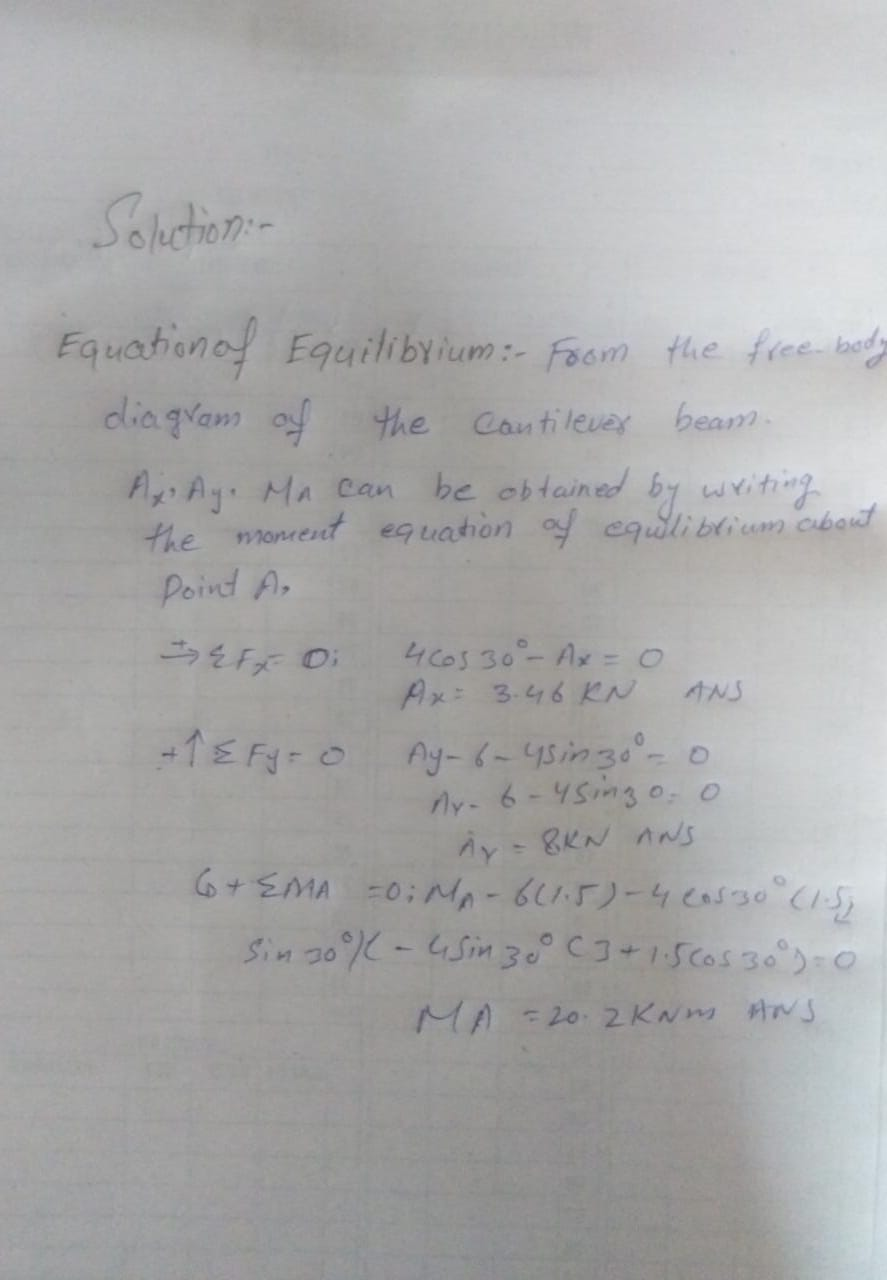 Solution:-
Equation of Equilibrium:- From the free-body
diagram of the Cantilever beam.
Ax, Ay, MA can be obtained by writing
the moment equation of equilibrium about
Point A,
→+ ΣFx = 0; 4cos30° - Ax = 0
Ax = 3.46 KN ANS
+↑ΣFy = 0 Ay-6-4sin30° = 0
Ay-6-4sin30 = 0
Ay = 8KN ANS
↺+ ΣMA = 0; MA - 6(1.5) - 4 cos30° (1.5
Sin 30°) - 4Sin 30° (3 + 1.5cos30°) = 0
MA = 20.2KNm ANS